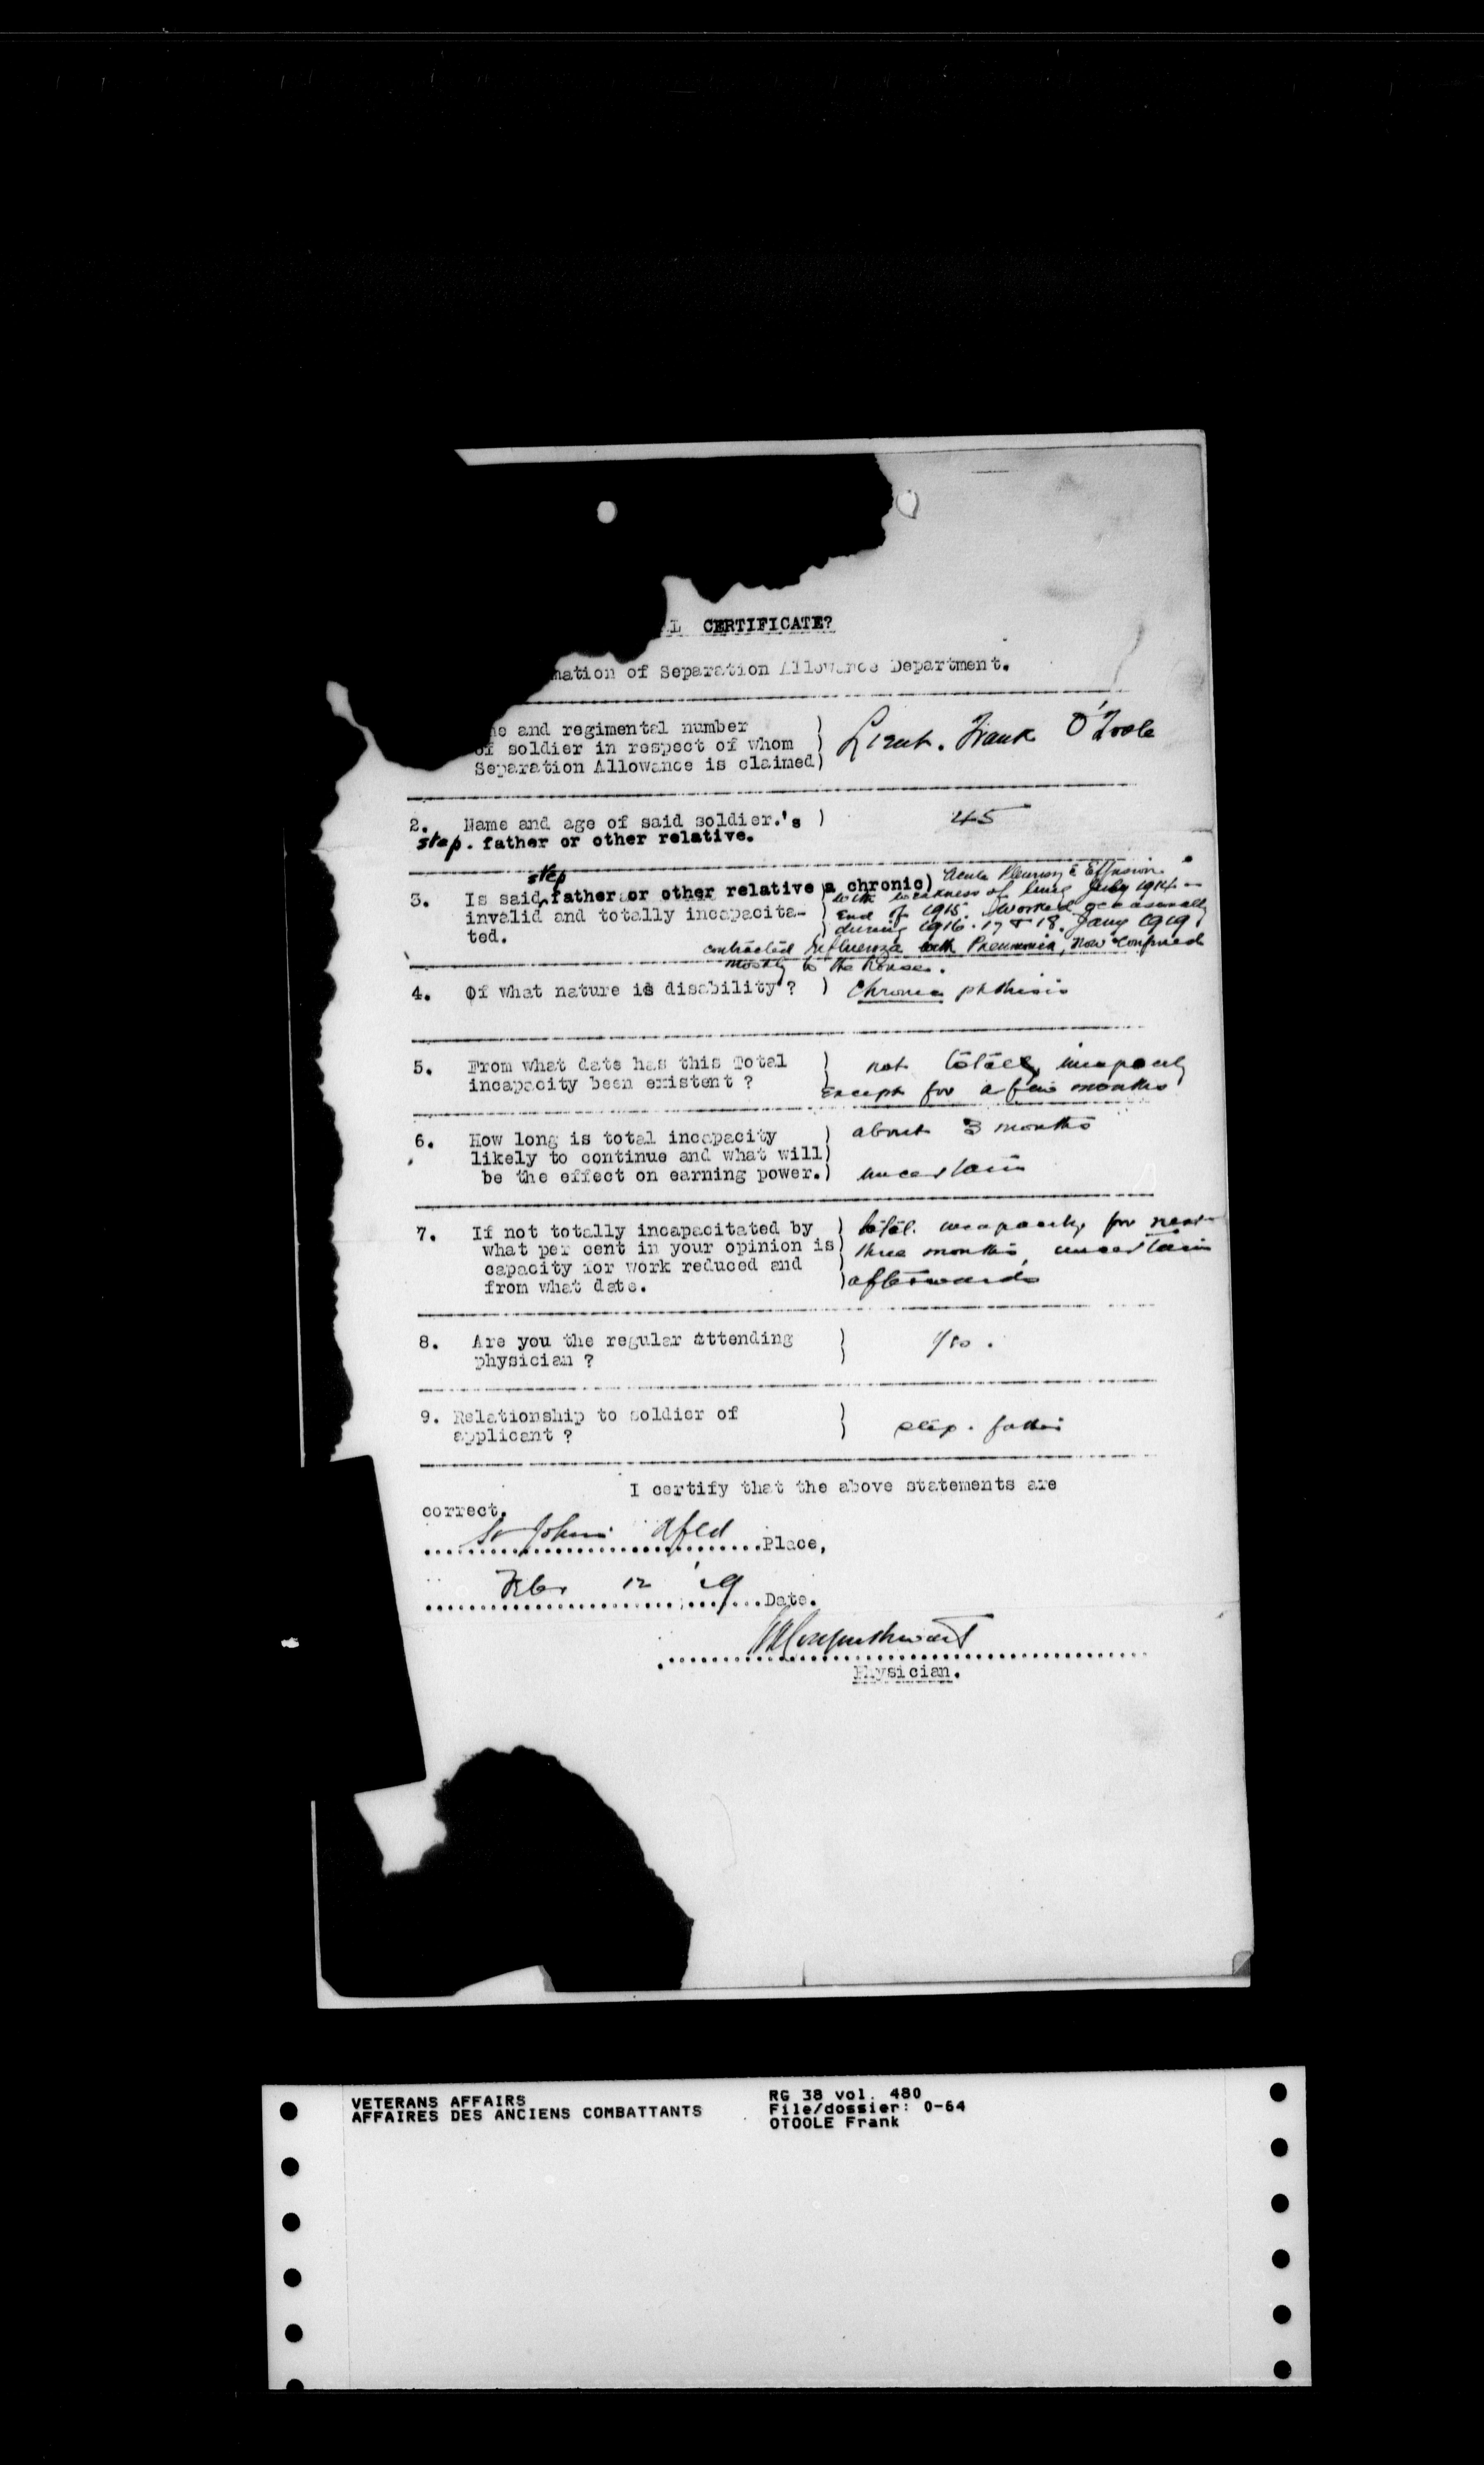 L CERTIFICATE?
mation of Separation Allowance Department.
me and regimental number )
of soldier in respect of whom ) Lieut. Frank O'Toole
Separation Allowance is claimed)
2. Name and age of said soldier.'s ) 45
step. father or other relative.
step
3. Is said father or other relative a chronic) Acute Pleurisy c Effusion
invalid and totally incapacita- ) with weakness of lung July 1914 -
ted. ) End of 1915. Worked occasionally
) during 1916. 17 & 18. Jany 1919
contracted Influenza with Pneumonia, now confined
mostly to the house.
4. Of what nature is disability ? ) Chronic phthisis
5. From what date has this Total ) not totally incapacity
incapacity been existent ? ) Except for a few months
6. How long is total incapacity ) about 3 months
likely to continue and what will)
be the effect on earning power.) uncertain
7. If not totally incapacitated by ) total incapacity for next
what per cent in your opinion is) three months, uncertain
capacity for work reduced and )
from what date. ) afterwards
8. Are you the regular attending ) yes.
physician ? )
9. Relationship to soldier of )
applicant ? ) step. father
I certify that the above statements are
correct.
St Johns Nfld Place,
Feb 12 '19 Date.
Physician.
VETERANS AFFAIRS
AFFAIRES DES ANCIENS COMBATTANTS
RG 38 vol. 480
File/dossier: O-64
OTOOLE Frank